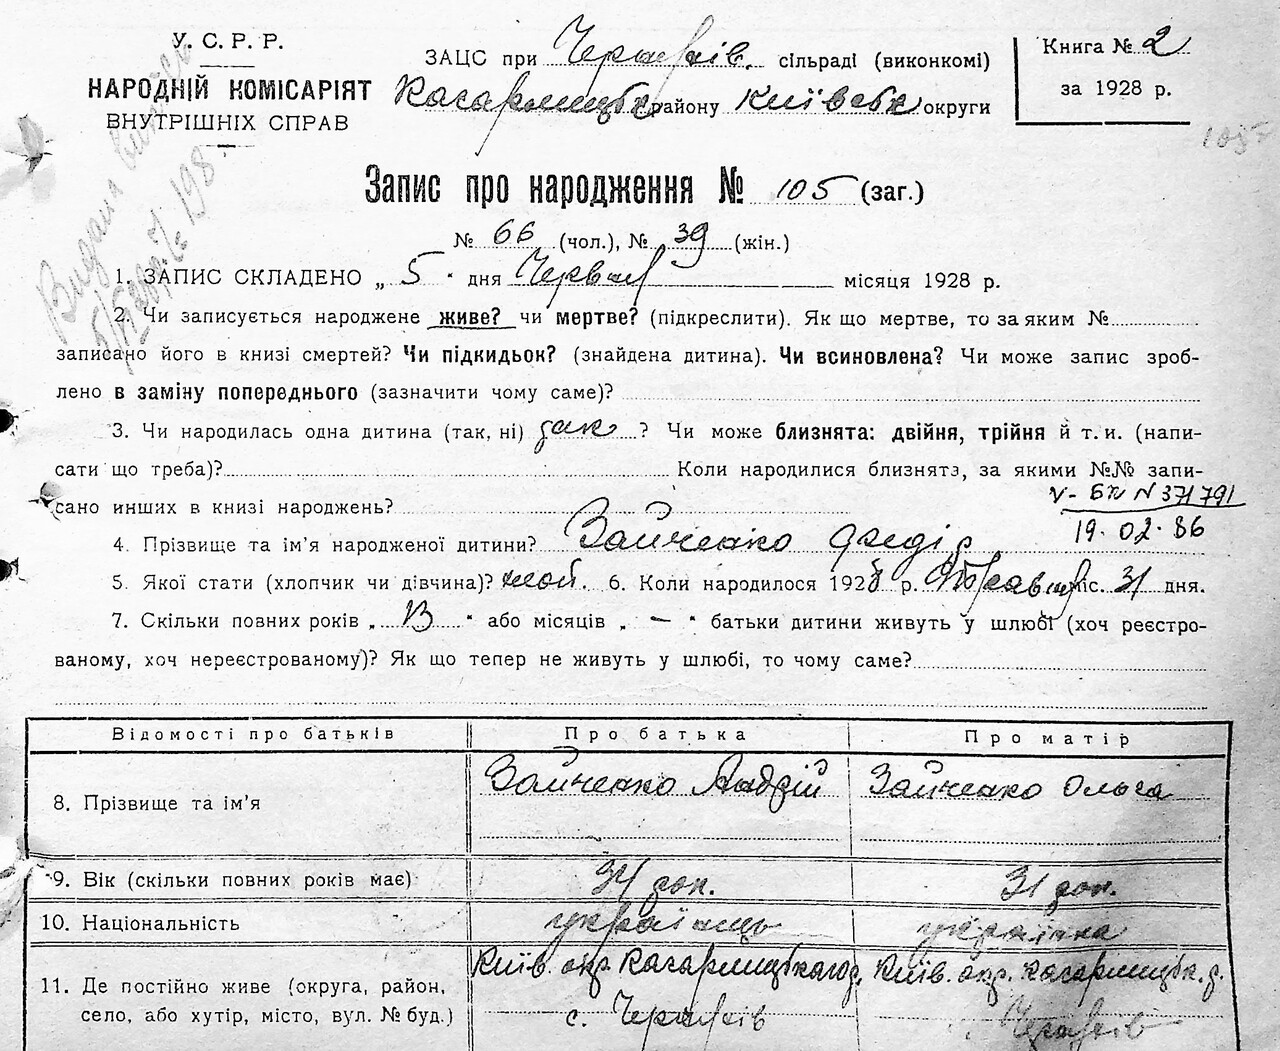 У. С. Р. Р.
НАРОДНІЙ КОМІСАРІЯТ
ВНУТРІШНІХ СПРАВ
ЗАЦС при Черняхів. сільраді (виконкомі)
Кагарлицьк району Київськ округи
Книга № 2
за 1928 р.
105
Запис про народження № 105 (заг.)
№ 66 (чол.), № 39 (жін.)
1. ЗАПИС СКЛАДЕНО „ 5 " дня Червня місяця 1928 р.
2. Чи записується народжене живе? чи мертве? (підкреслити). Як що мертве, то за яким №
записано його в книзі смертей? Чи підкидьок? (знайдена дитина). Чи всиновлена? Чи може запис зроб-
лено в заміну попереднього (зазначити чому саме)?
3. Чи народилась одна дитина (так, ні) так ? Чи може близнята: двійня, трійня й т. и. (напи-
сати що треба)? Коли народилися близнята, за якими №№ запи-
сано инших в книзі народжень?
V- БК N 371791
19.02.86
4. Прізвище та ім'я народженої дитини? Зайченко Федір
5. Якої стати (хлопчик чи дівчина)? чол. 6. Коли народилося 1928 р. Травня міс. 31 дня.
7. Скільки повних років „ 13 " або місяців „ — " батьки дитини живуть у шлюбі (хоч реєстро-
ваному, хоч нереєстрованому)? Як що тепер не живуть у шлюбі, то чому саме?
Відомості про батьків Про батька Про матір
8. Прізвище та ім'я Зайченко Андрій Зайченко Ольга
9. Вік (скільки повних років має) 34 рок. 31 рок.
10. Національність українець українка
11. Де постійно живе (округа, район, Київ. окр. Кагарлицького р. Київ. окр. Кагарлицьк. р.
село, або хутір, місто, вул. № буд.) с. Черняхів с. Черняхів